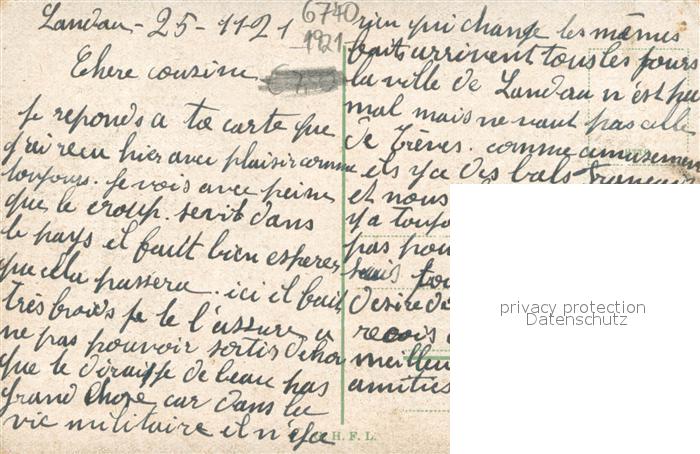 Landau - 25 - 11 21
6740
1921
Chere cousine
je reponds a ta carte que
j'ai recu hier avec plaisir comme
toujours. je vois avec peine
que le croup. servit dans
le pays il fault bien esperer
que cela passera. ici il fait
très froids je te l'assure a
ne pas pouvoir sortir dehor
que te dirais je de beau pas
grand chose car dans la
vie militaire il n'y a
H. F. L.
rien qui change les mêmes
faits arrivent tous les jours
la ville de Landau n'est pas
mal mais ne vaut pas celle
de Trèves. comme amusemen
ils y a des bals français
et nous
y a toujo
pas pou
suis
desire de
recois
meilleu
amities
privacy protection
Datenschutz